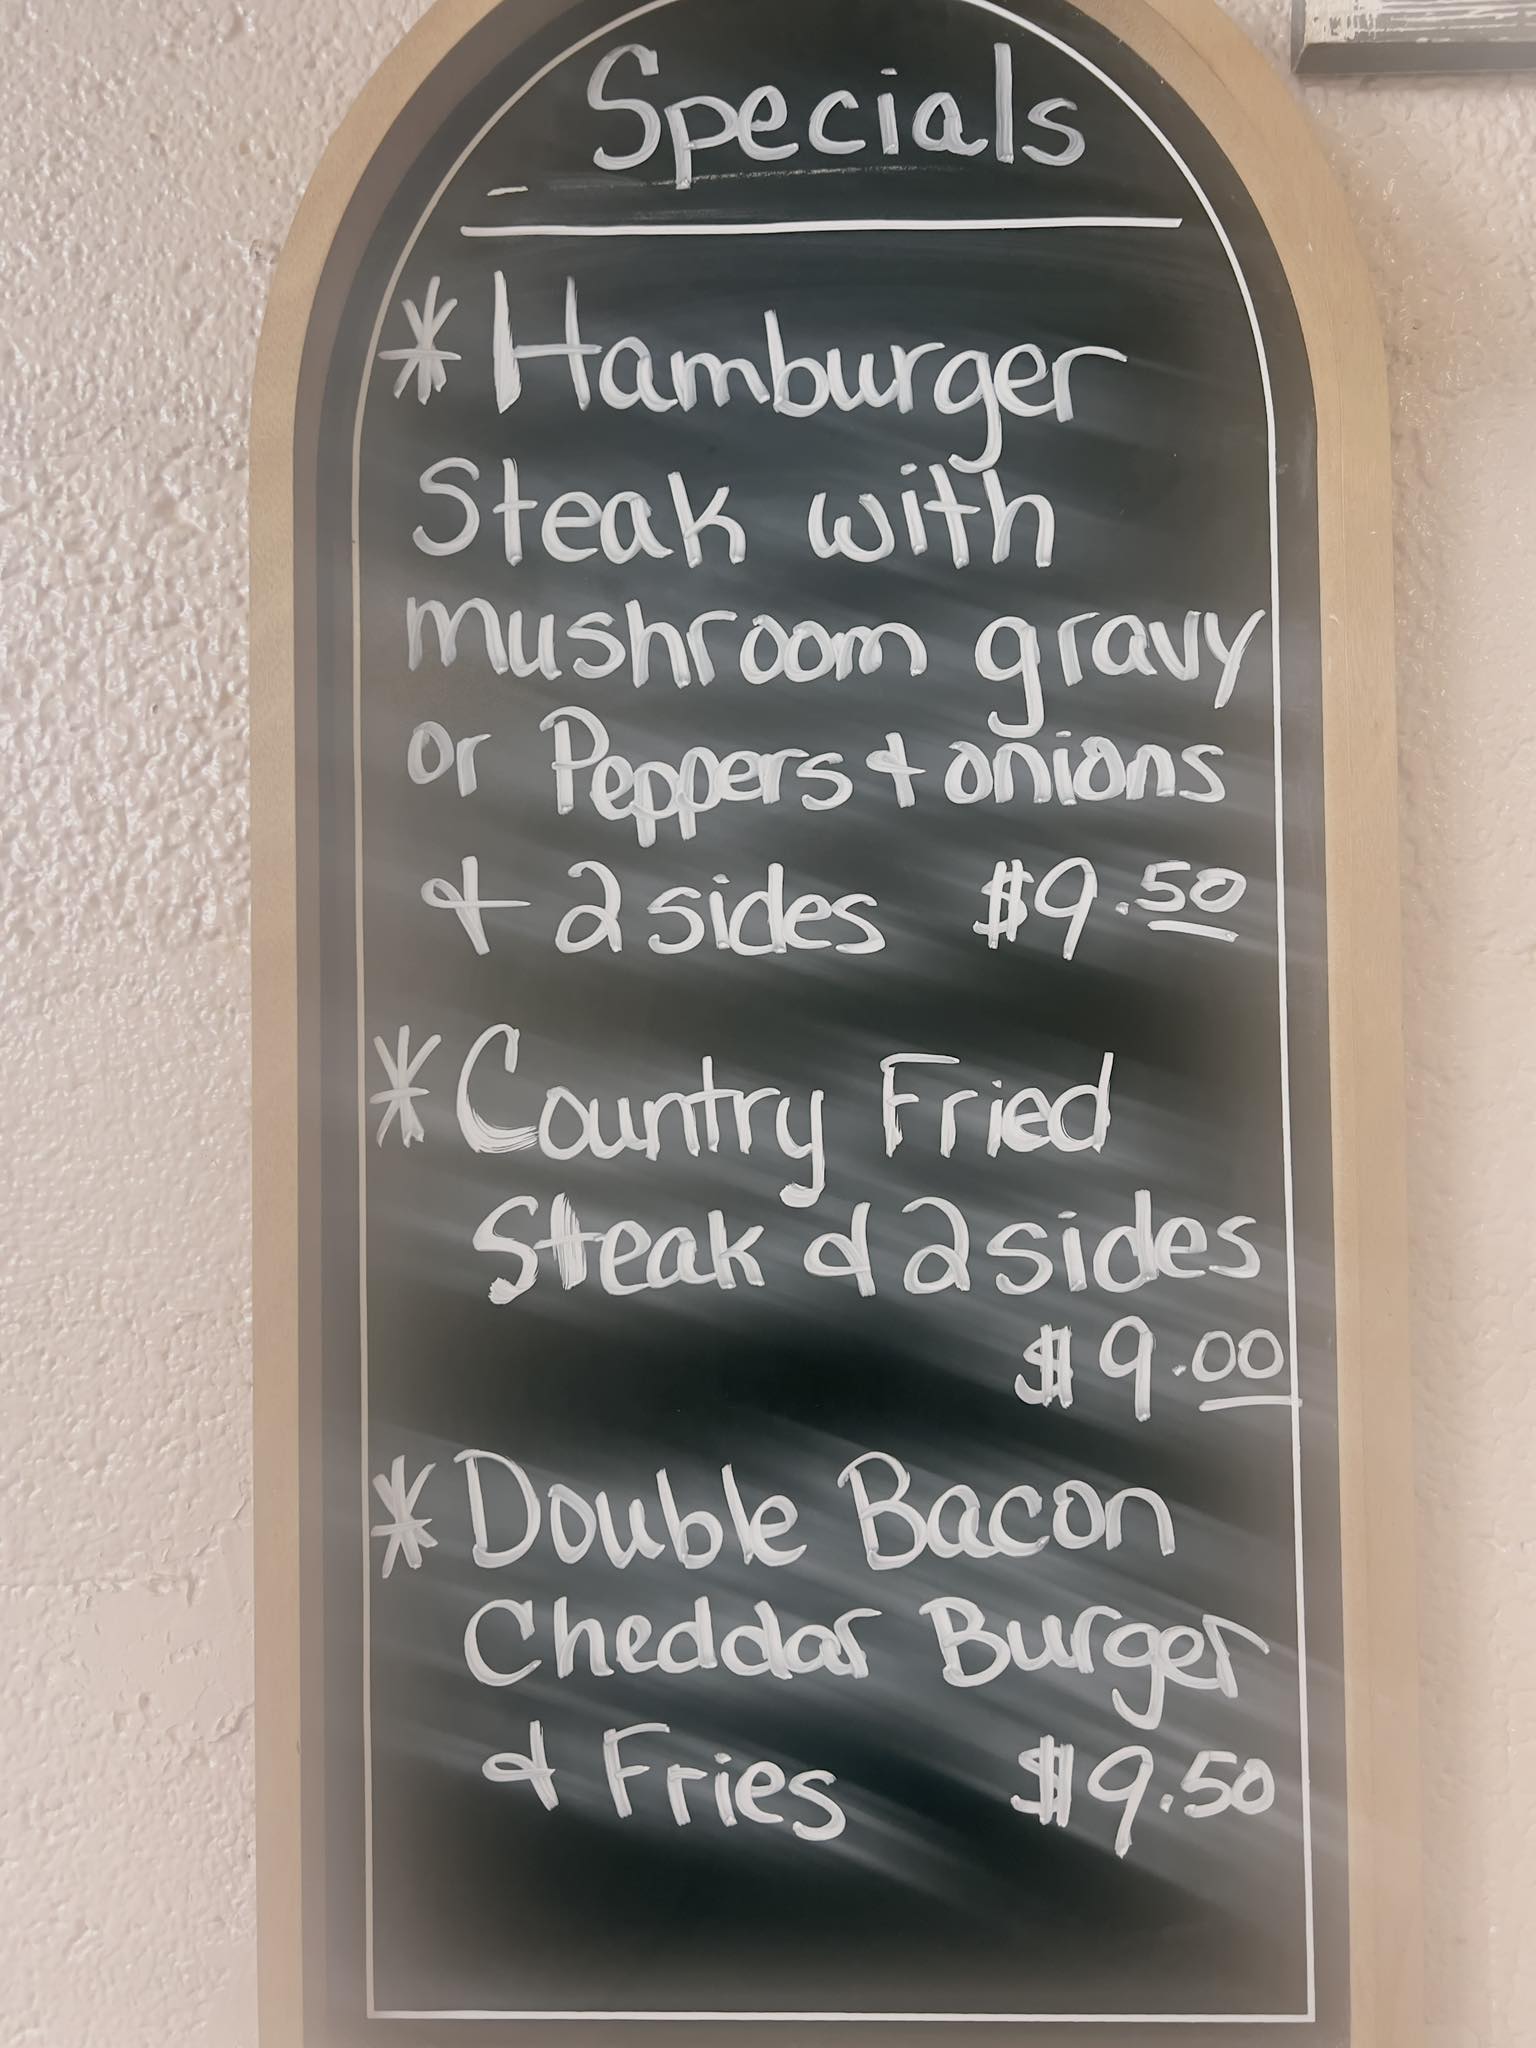 Specials
* Hamburger
Steak with
mushroom gravy
or Peppers & onions
& 2 sides $9.50
* Country Fried
Steak & 2 sides
$9.00
* Double Bacon
Cheddar Burger
& Fries $9.50